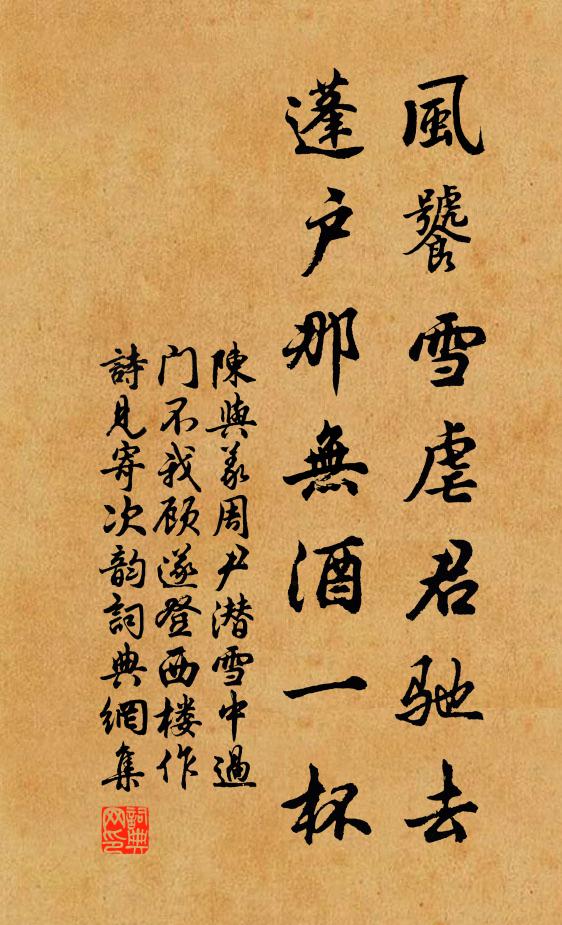 風饕雪虐君馳去
蓬户那無酒一杯
陳與義周尹潜雪中過
门不我顾遂登西楼作
詩見寄次韵詞典網集
詞典
网印